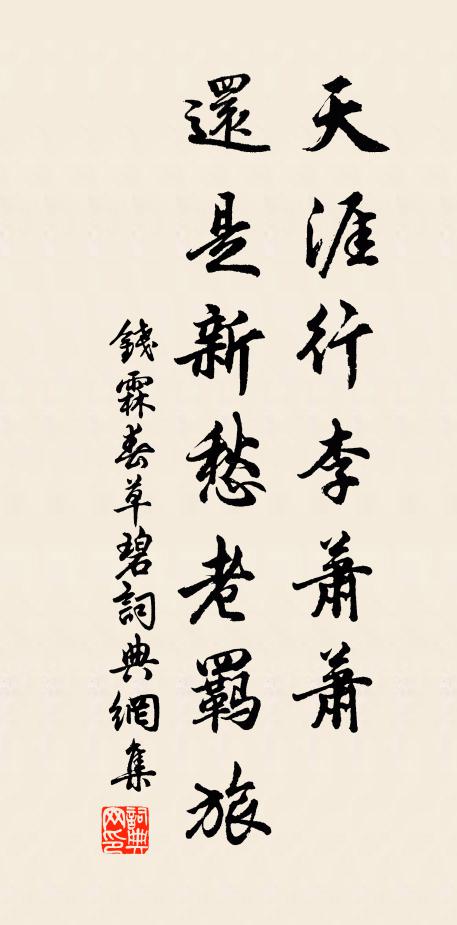 天涯行李蕭蕭
還是新愁老羈旅
錢霖春草碧詞典網集
詞典網印